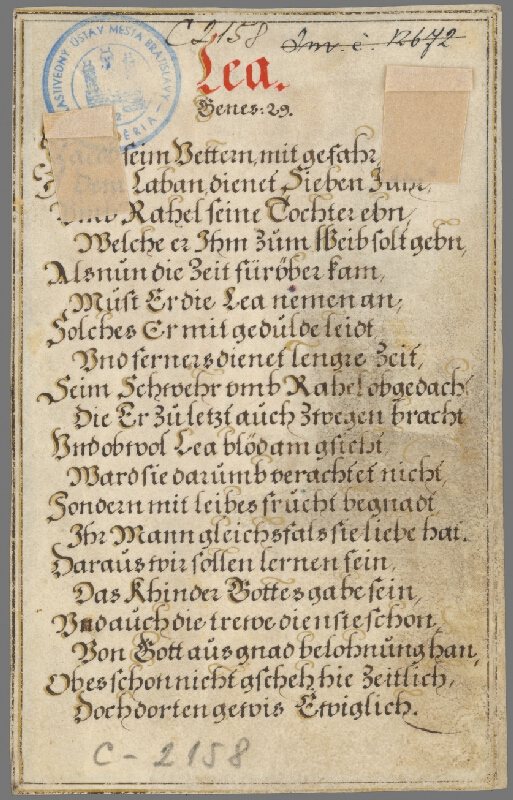 C 2158 Inv. č. 12672
Lea.
Genes: 29.
seim Vettern, mit gefahr,
Laban, dienet Sieben Jahr,
Vmb Rahel seine Tochter ebn,
Welche er Ihm zum Weib solt gebn,
Als nun die Zeit fürüber kam,
Must Er die Lea nemen an,
Solches Er mit gedulde leidt
Vnd ferners dienet lengre Zeit,
Seim Schwehr vmb Rahel obgedacht
Die Er zu letzt auch zwegen bracht
Vnd obwol Lea blöd am gsicht,
Ward sie darumb verachtet nicht,
Sondern mit leibes frucht begnadt,
Ihr Mann gleichsfals sie liebe hat.
Daraus wir sollen lernen fein,
Das Khinder Gottes gabe sein,
Vnd auch die trewe dienste schon,
Von Gott aus gnad belohnung han,
Ob es schon nicht gscheh hie Zeitlich,
Doch dorten gewis Ewiglich.
C - 2158